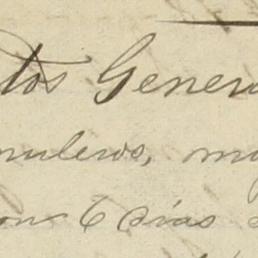 tos Gener
muleros, m
on 6 dias